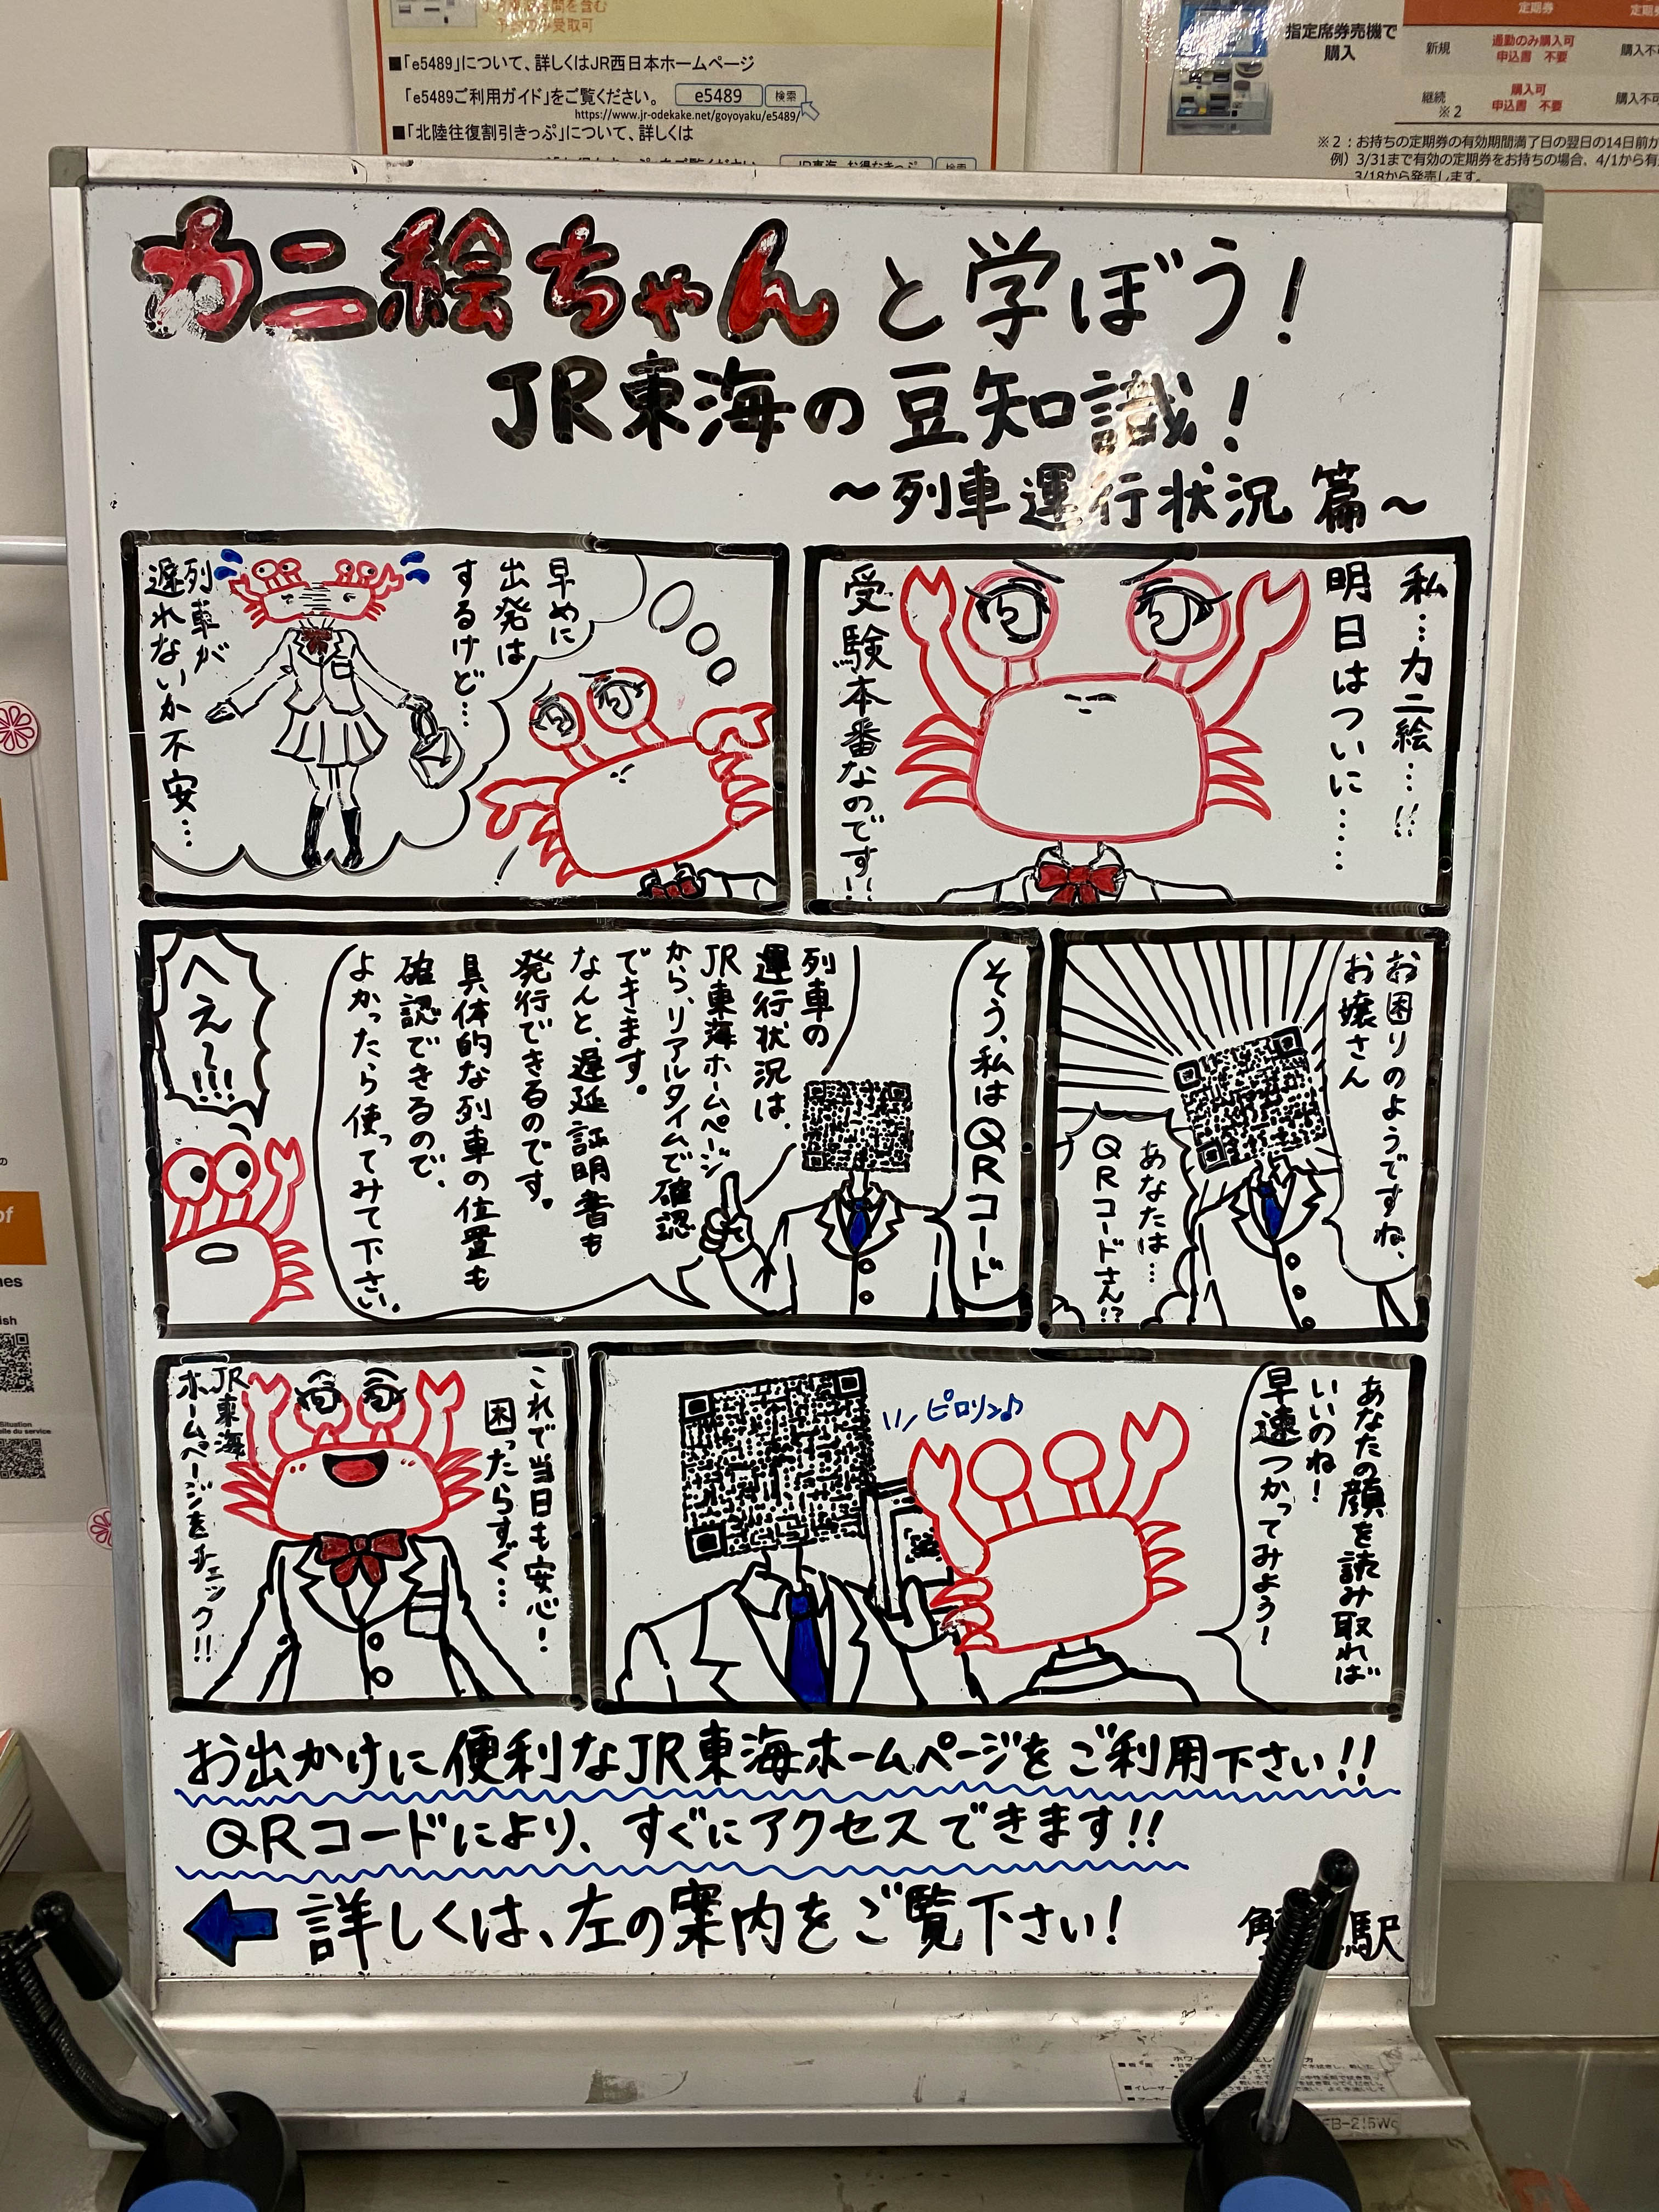 予約のみ受取可
■「e5489」について、詳しくはJR西日本ホームページ
「e5489ご利用ガイド」をご覧ください。 e5489 検索
https://www.jr-odekake.net/goyoyaku/e5489/
■「北陸往復割引きっぷ」について、詳しくは
指定席券売機で
購入
定期券
新規
通勤のみ購入可
申込書 不要
継続
※2
購入可
申込書 不要
※2：お持ちの定期券の有効期間満了日の翌日の14日前か
例）3/31まで有効の定期券をお持ちの場合、4/1から有
3/18から発売します。
カニ絵ちゃんと学ぼう!
JR東海の豆知識!
～列車運行状況 篇～
私…カニ絵…!!
明日はついに……
受験本番なのです!!
早めに
出発は
するけど…
列車が
遅れないか不安…
お困りのようですね、
お嬢さん
あなたは…
QRコードさん!?
そう、私はQRコード
列車の
運行状況は、
JR東海ホームページ
から、リアルタイムで確認
できます。
なんと、遅延証明書も
発行できるのです。
具体的な列車の位置も
確認できるので、
よかったら使ってみて下さい。
へえ～!!!
あなたの顔を読み取れば
いいのね!
早速つかってみよう!
ピロリン♪
これで当日も安心!
困ったらすぐ…
JR東海
ホームページをチェック!!
お出かけに便利なJR東海ホームページをご利用下さい!!
QRコードにより、すぐにアクセスできます!!
詳しくは、左の案内をご覧下さい!
駅